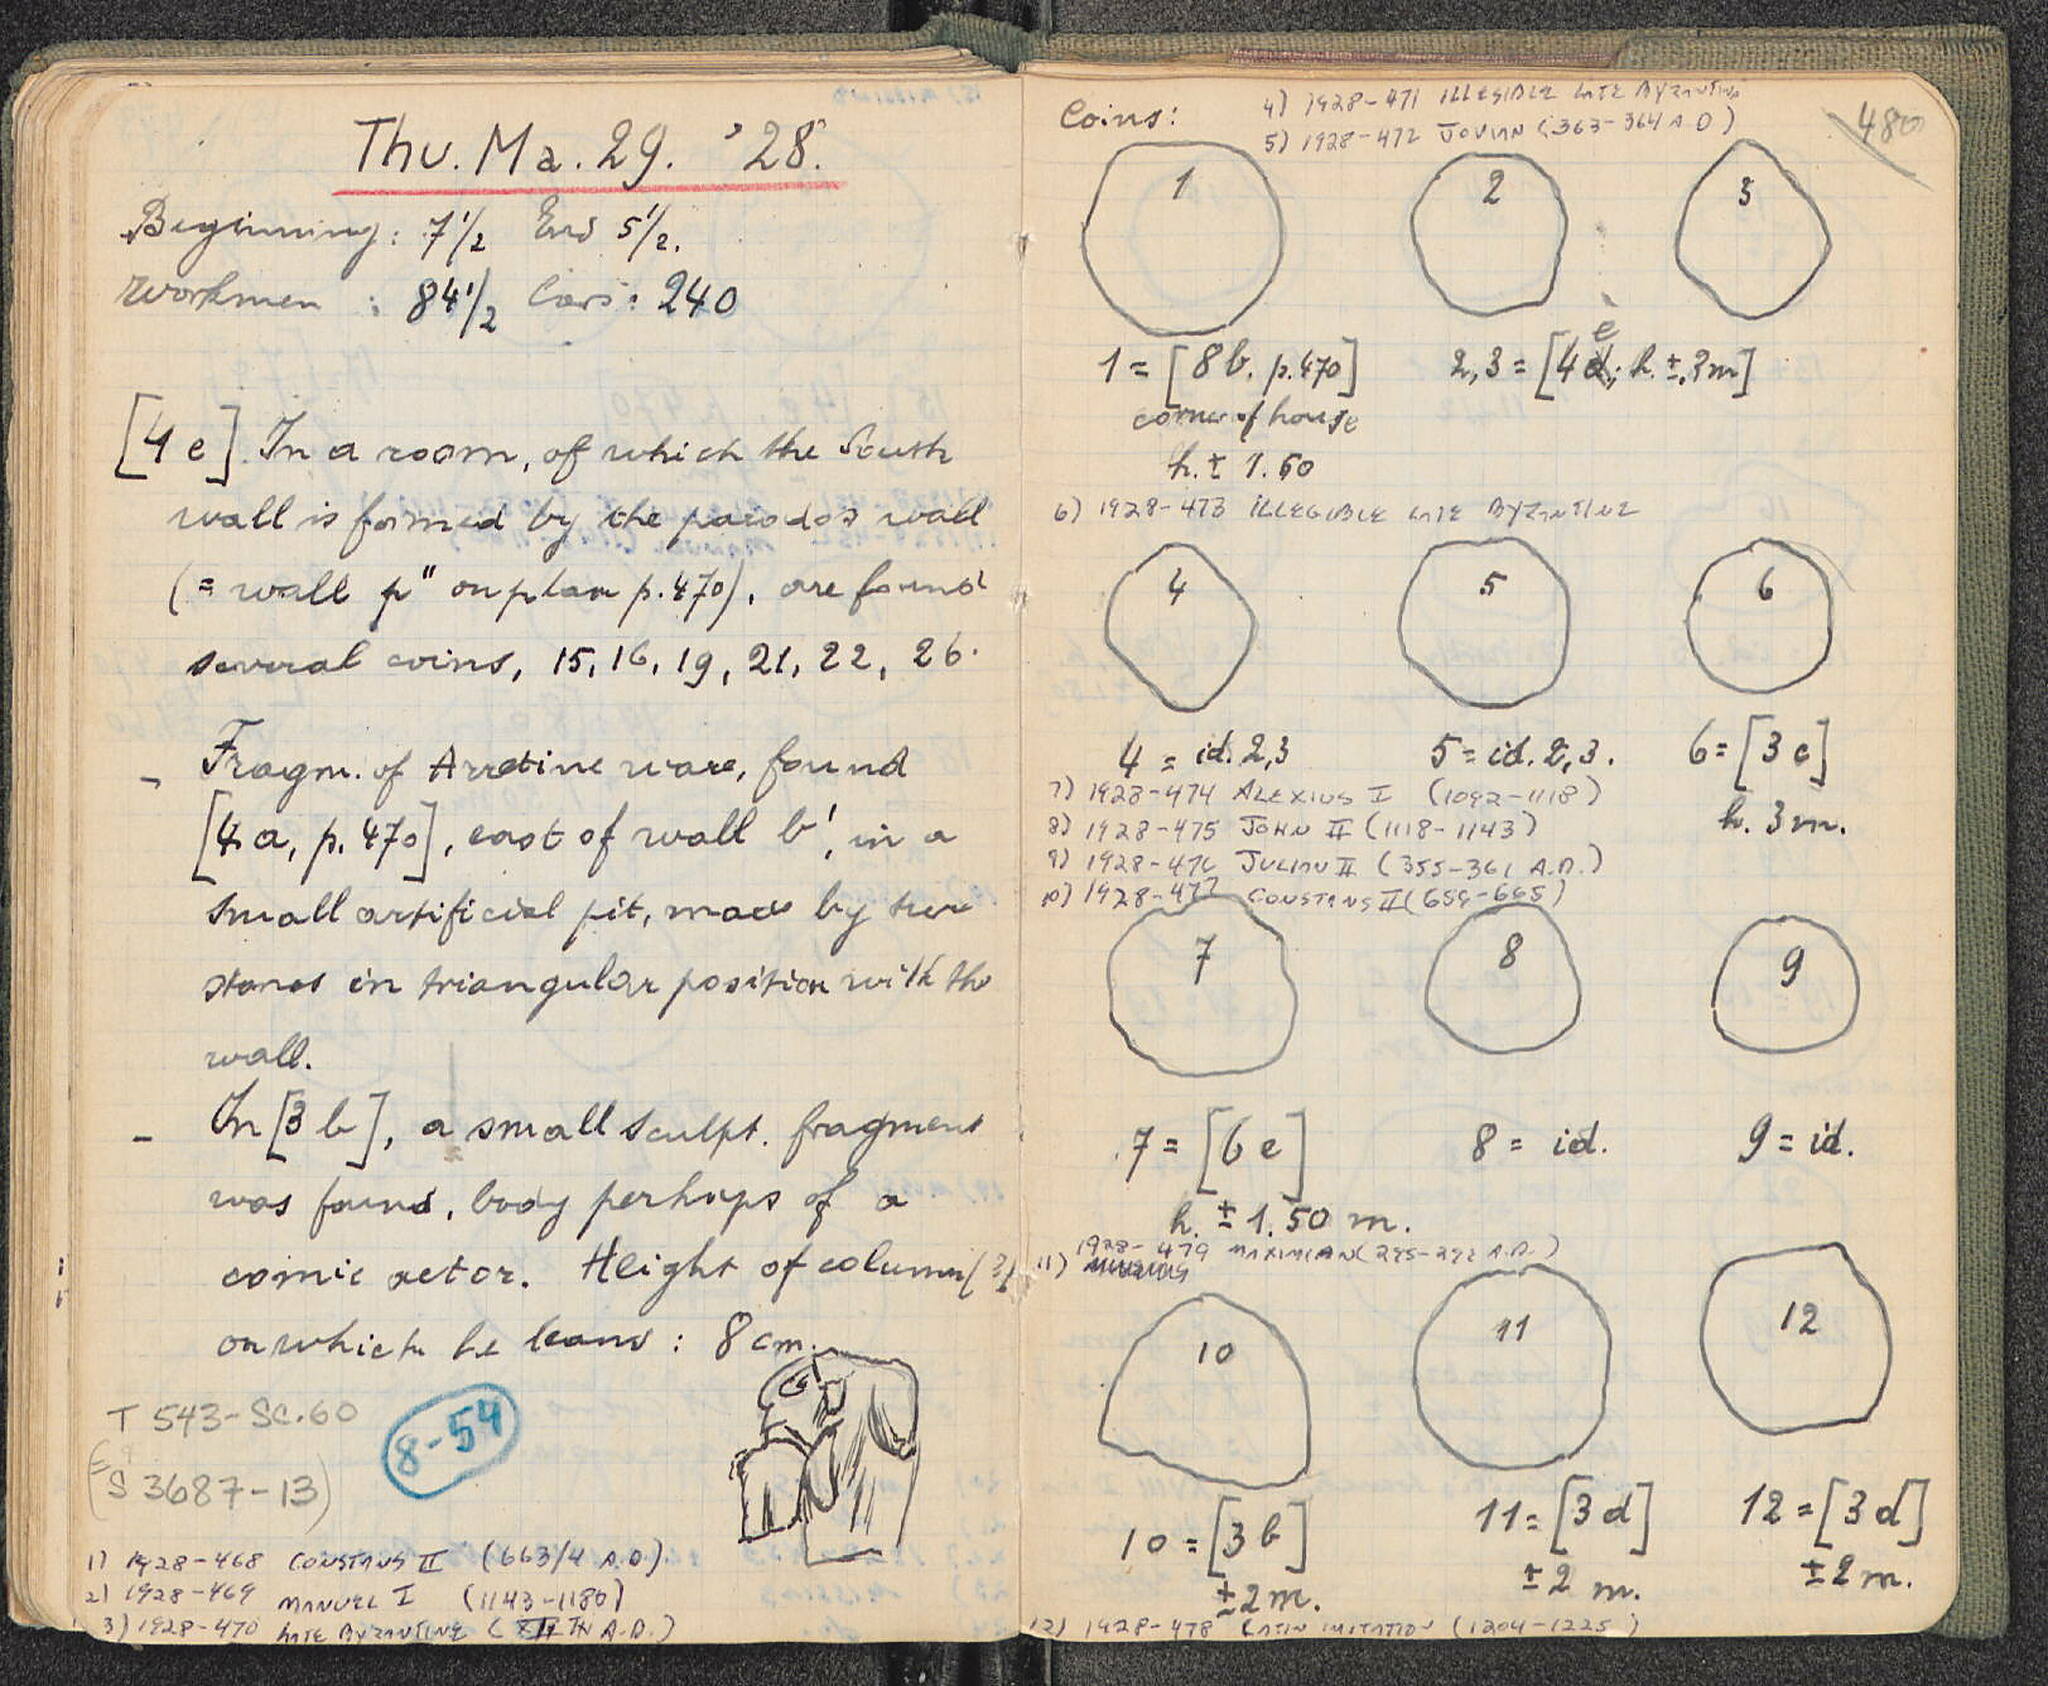 Thu. Ma. 29. '28.
Beginning: 7 1/2 End 5 1/2.
Workmen : 84 1/2 Cars: 240
[4 e]. In a room, of which the South
wall is formed by the parodos wall
(= wall p" on plan p. 470), are found
several coins, 15, 16, 19, 21, 22, 26.
- Fragm. of Arretine ware, found
[4 a, p. 470], east of wall b', in a
small artificial pit, made by two
stones in triangular position with the
wall.
- In [3 b], a small sculpt. fragment
was found, body perhaps of a
comic actor. Height of column (?)
on which he leans: 8 cm.
T 543-Sc.60
8-54
(= S 3687-13)
1) 1928-468 CONSTANS II (663/4 A.D.)
2) 1928-469 MANUEL I (1143-1180)
3) 1928-470 LATE BYZANTINE (TH A.D.)
480
Coins:
4) 1928-471 ILLEGIBLE LATE BYZANTINE
5) 1928-472 JOVIAN (363-364 A.D)
1
2
3
1 = [8 b. p. 470]
corner of house
h. ± 1.60
2, 3 = [4 e; h. ± 3m]
6) 1928-473 ILLEGIBLE LATE BYZANTINE
4
5
6
4 = id. 2,3
5 = id. 2,3.
6 = [3 c]
h. 3 m.
7) 1928-474 ALEXIUS I (1092-1118)
8) 1928-475 JOHN II (1118-1143)
9) 1928-476 JULIAN II (355-361 A.D.)
10) 1928-477 CONSTANS II (659-665)
7
8
9
7 = [6 e]
h. ± 1.50 m.
8 = id.
9 = id.
11) 1928-479 MAXIMIAN (295-292 A.D.)
10
11
12
10 = [3 b]
± 2 m.
11 = [3 d]
± 2 m.
12 = [3 d]
± 2 m.
12) 1928-478 LATIN IMITATION (1204-1225)